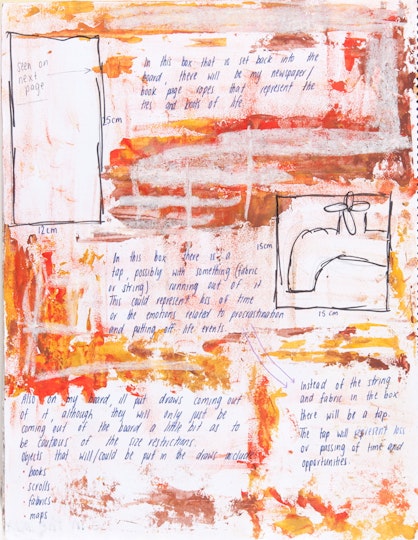 seen on
next
page
In this box that is set back into the
board, there will be my newspaper/
book page ropes that represent the
ties and knots of life.
25cm
12cm
In this box there is a
tap possibly with something (fabric
or string) running out of it.
This could represent loss of time
or the emotions related to procrastination
and putting off life events.
15cm
15 cm
Instead of the string
and fabric in the box
there will be a tap.
The tap will represent loss
or passing of time and
opportunities.
Also on my board, ill put draws coming out
of it, although they will only just be
coming out of the board a little bit as to
be cautious of the size restrictions.
Objects that will/could be put in the draws include:
· books
· scrolls
· fabrics
· maps